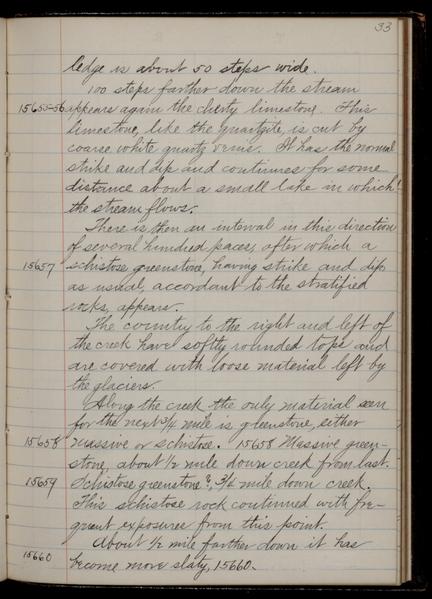 33
ledge is about 50 steps wide.
100 steps farther down the stream
15655-56 appears again the cherty limestone. This
limestone, like the quartzite, is cut by
coarse white quartz veins. It has the normal
strike and dip and continues for some
distance about a small lake in which
the stream flows.
There is then an interval in this direction
of several hundred paces, after which a
15657 schistose greenstone, having strike and dip
as usual, accordant to the stratified
rocks, appears.
The country to the right and left of
the creek have softly rounded tops and
are covered with loose material left by
the glaciers.
Along the creek the only material seen
for the next 3/4 mile is greenstone, either
15658 massive or schistose. 15658 Massive green-
stone, about 1/2 mile down creek from last.
15659 Schistose greenstone?, 3/4 mile down creek.
This schistose rock continued with fre-
quent exposures from this point.
About 1/2 mile farther down it has
15660 become more slaty, 15660.